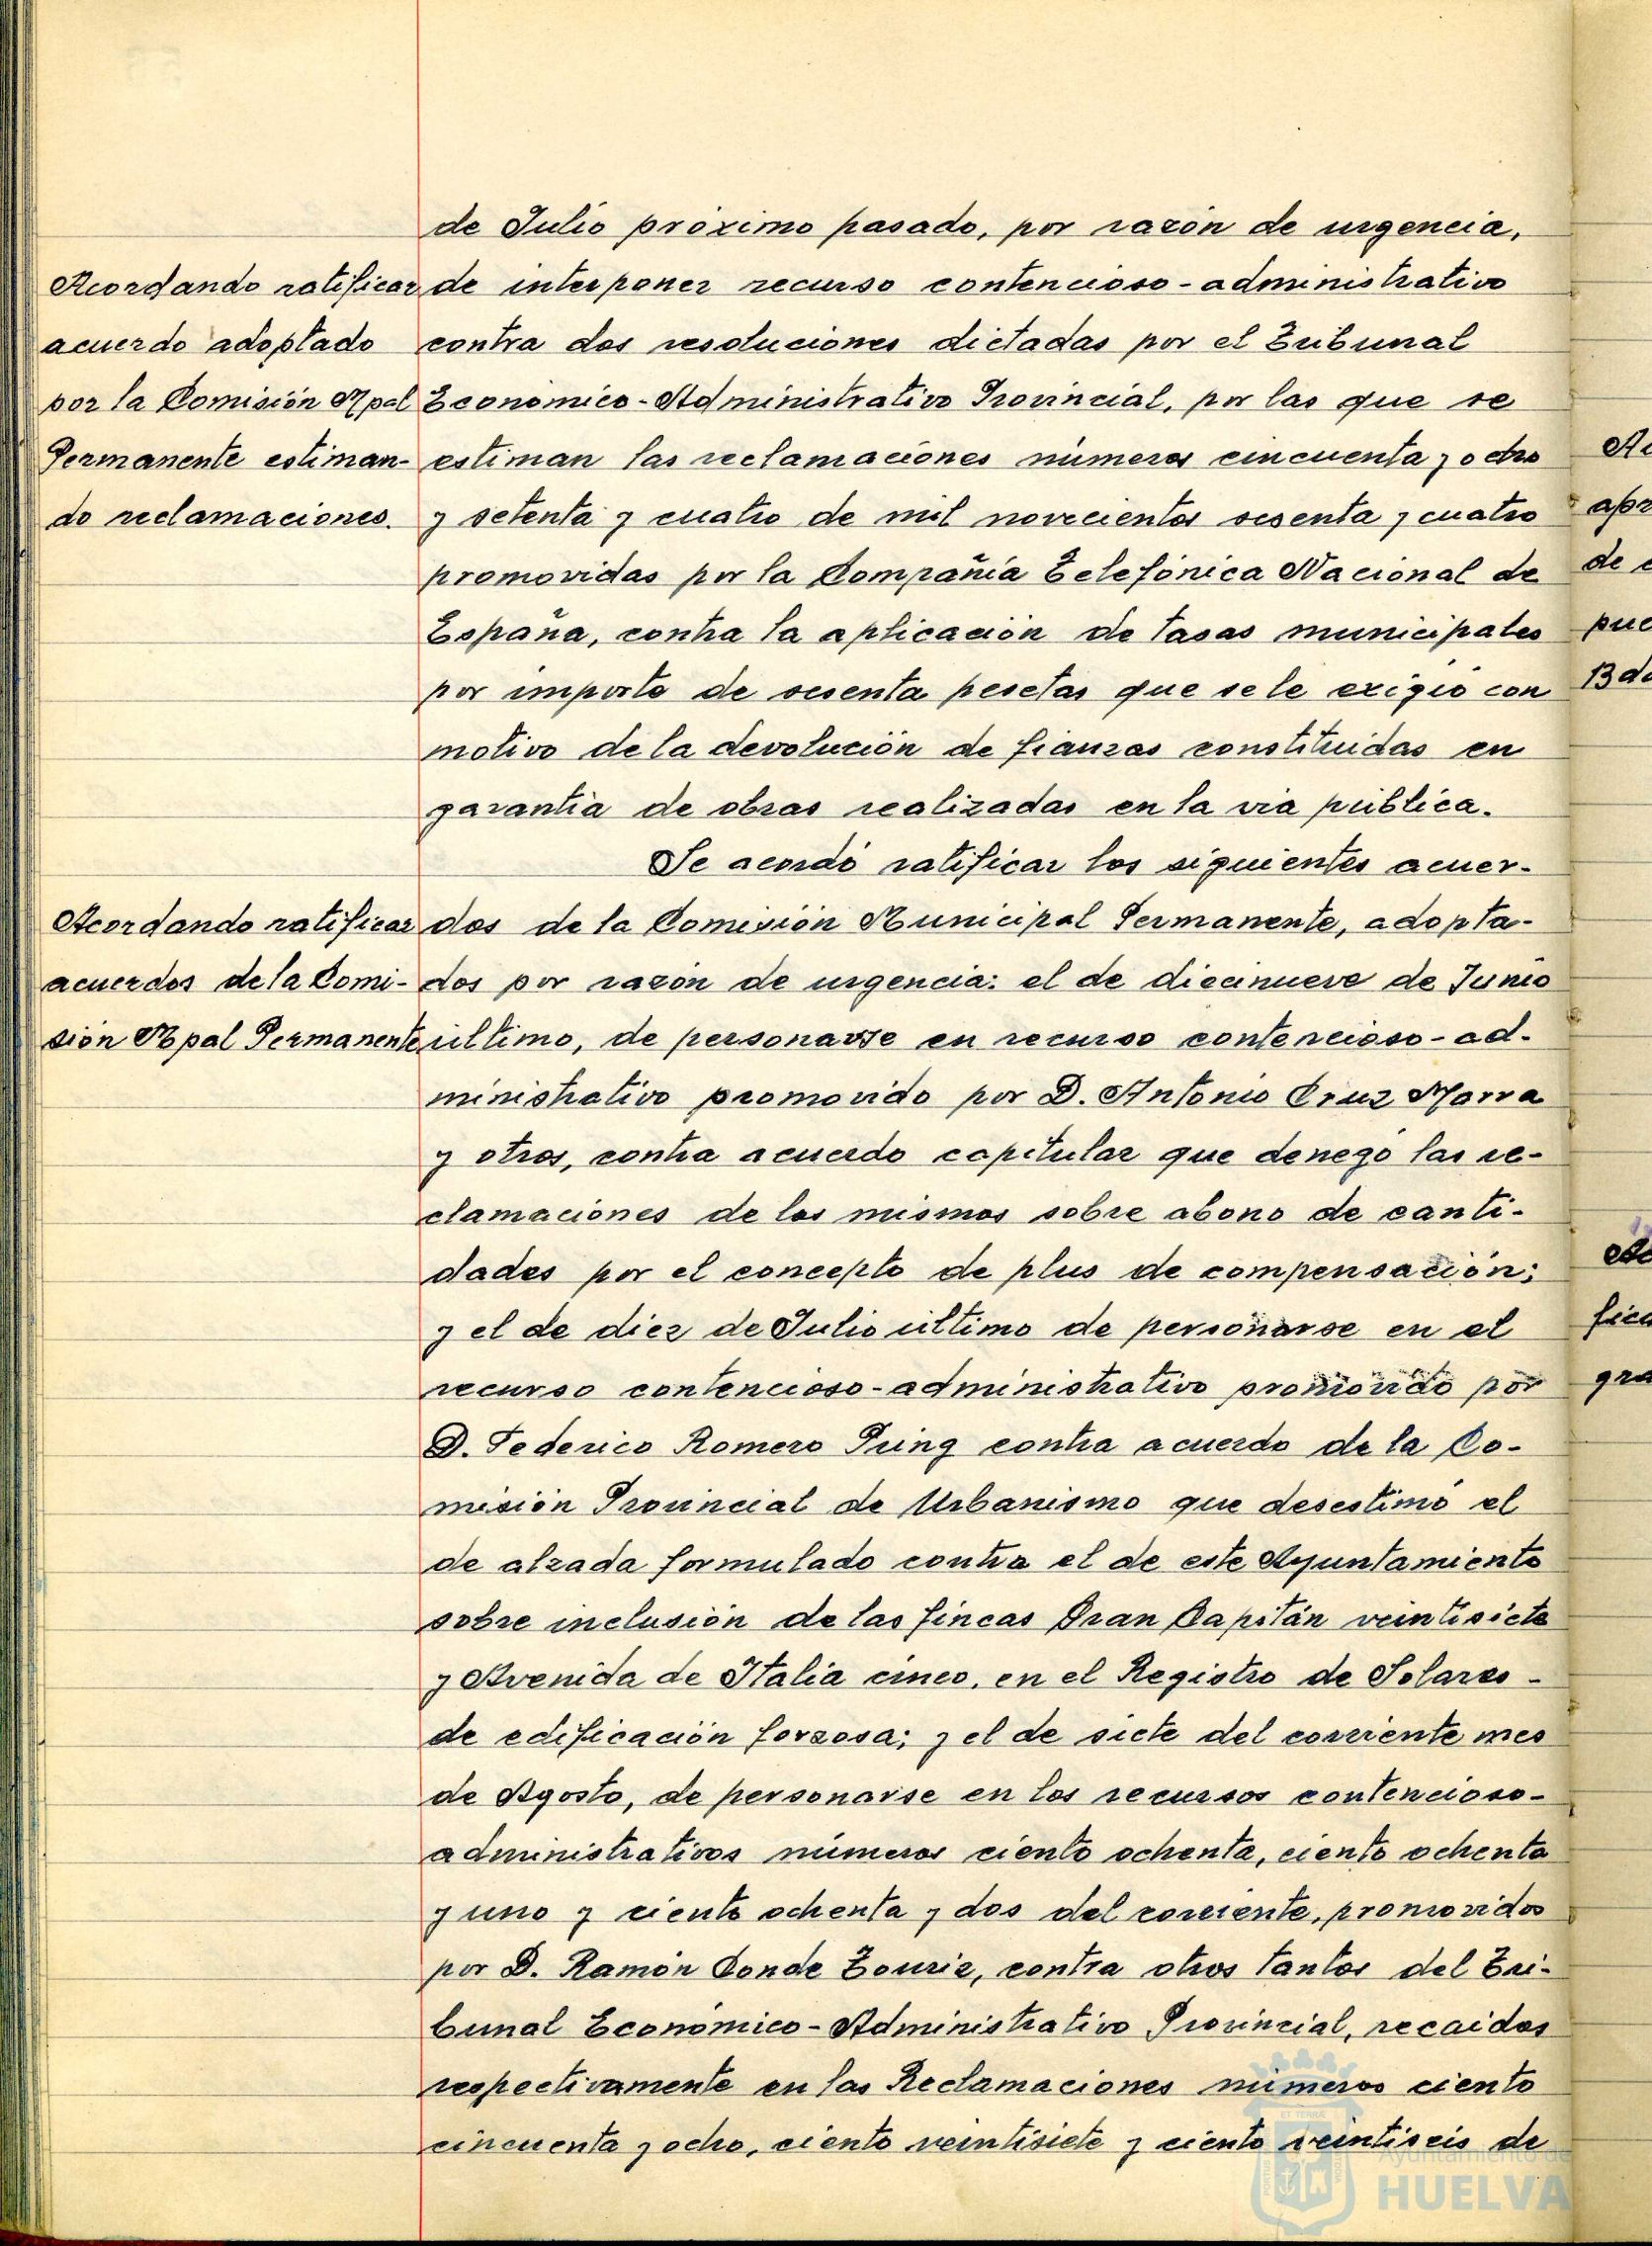 de Julio próximo pasado, por razón de urgencia,
Acordando ratificar
acuerdo adoptado
por la Comisión Mpal
Permanente estiman-
do reclamaciones.
de interponer recurso contencioso-administrativo
contra dos resoluciones dictadas por el Tribunal
Económico-Administrativo Provincial, por las que se
estiman las reclamaciones números cincuenta y ocho
y setenta y cuatro de mil novecientos sesenta y cuatro
promovidas por la Compañía Telefónica Nacional de
España, contra la aplicación de tasas municipales
por importe de sesenta pesetas que se le exigió con
motivo de la devolución de fianzas constituidas en
garantía de obras realizadas en la via pública.
Se acordó ratificar los siguientes acuer-
Acordando ratificar
acuerdos de la Comi-
sión Mpal Permanente
dos de la Comisión Municipal Permanente, adopta-
dos por razón de urgencia: el de diecinueve de Junio
último, de personarse en recurso contencioso-ad-
ministrativo promovido por D. Antonio Cruz Marra
y otros, contra acuerdo capitular que denegó las re-
clamaciones de los mismos sobre abono de canti-
dades por el concepto de plus de compensación;
y el de diez de Julio último de personarse en el
recurso contencioso-administrativo promovido por
D. Federico Romero Pring contra acuerdo de la Co-
misión Provincial de Urbanismo que desestimó el
de alzada formulado contra el de este Ayuntamiento
sobre inclusión de las fincas Gran Capitán veintisiete
y Avenida de Italia cinco, en el Registro de Solares-
de edificación forzosa; y el de siete del corriente mes
de Agosto, de personarse en los recursos contencioso-
administrativos números ciento ochenta, ciento ochenta
y uno y ciento ochenta y dos del corriente, promovidos
por D. Ramón Conde Touriz, contra otros tantos del Tri-
bunal Económico-Administrativo Provincial, recaidos
respectivamente en las Reclamaciones números ciento
cincuenta y ocho, ciento veintisiete y ciento veintiseis de
de
pue
13 de
fica
gra
Ayuntamiento de
HUELVA